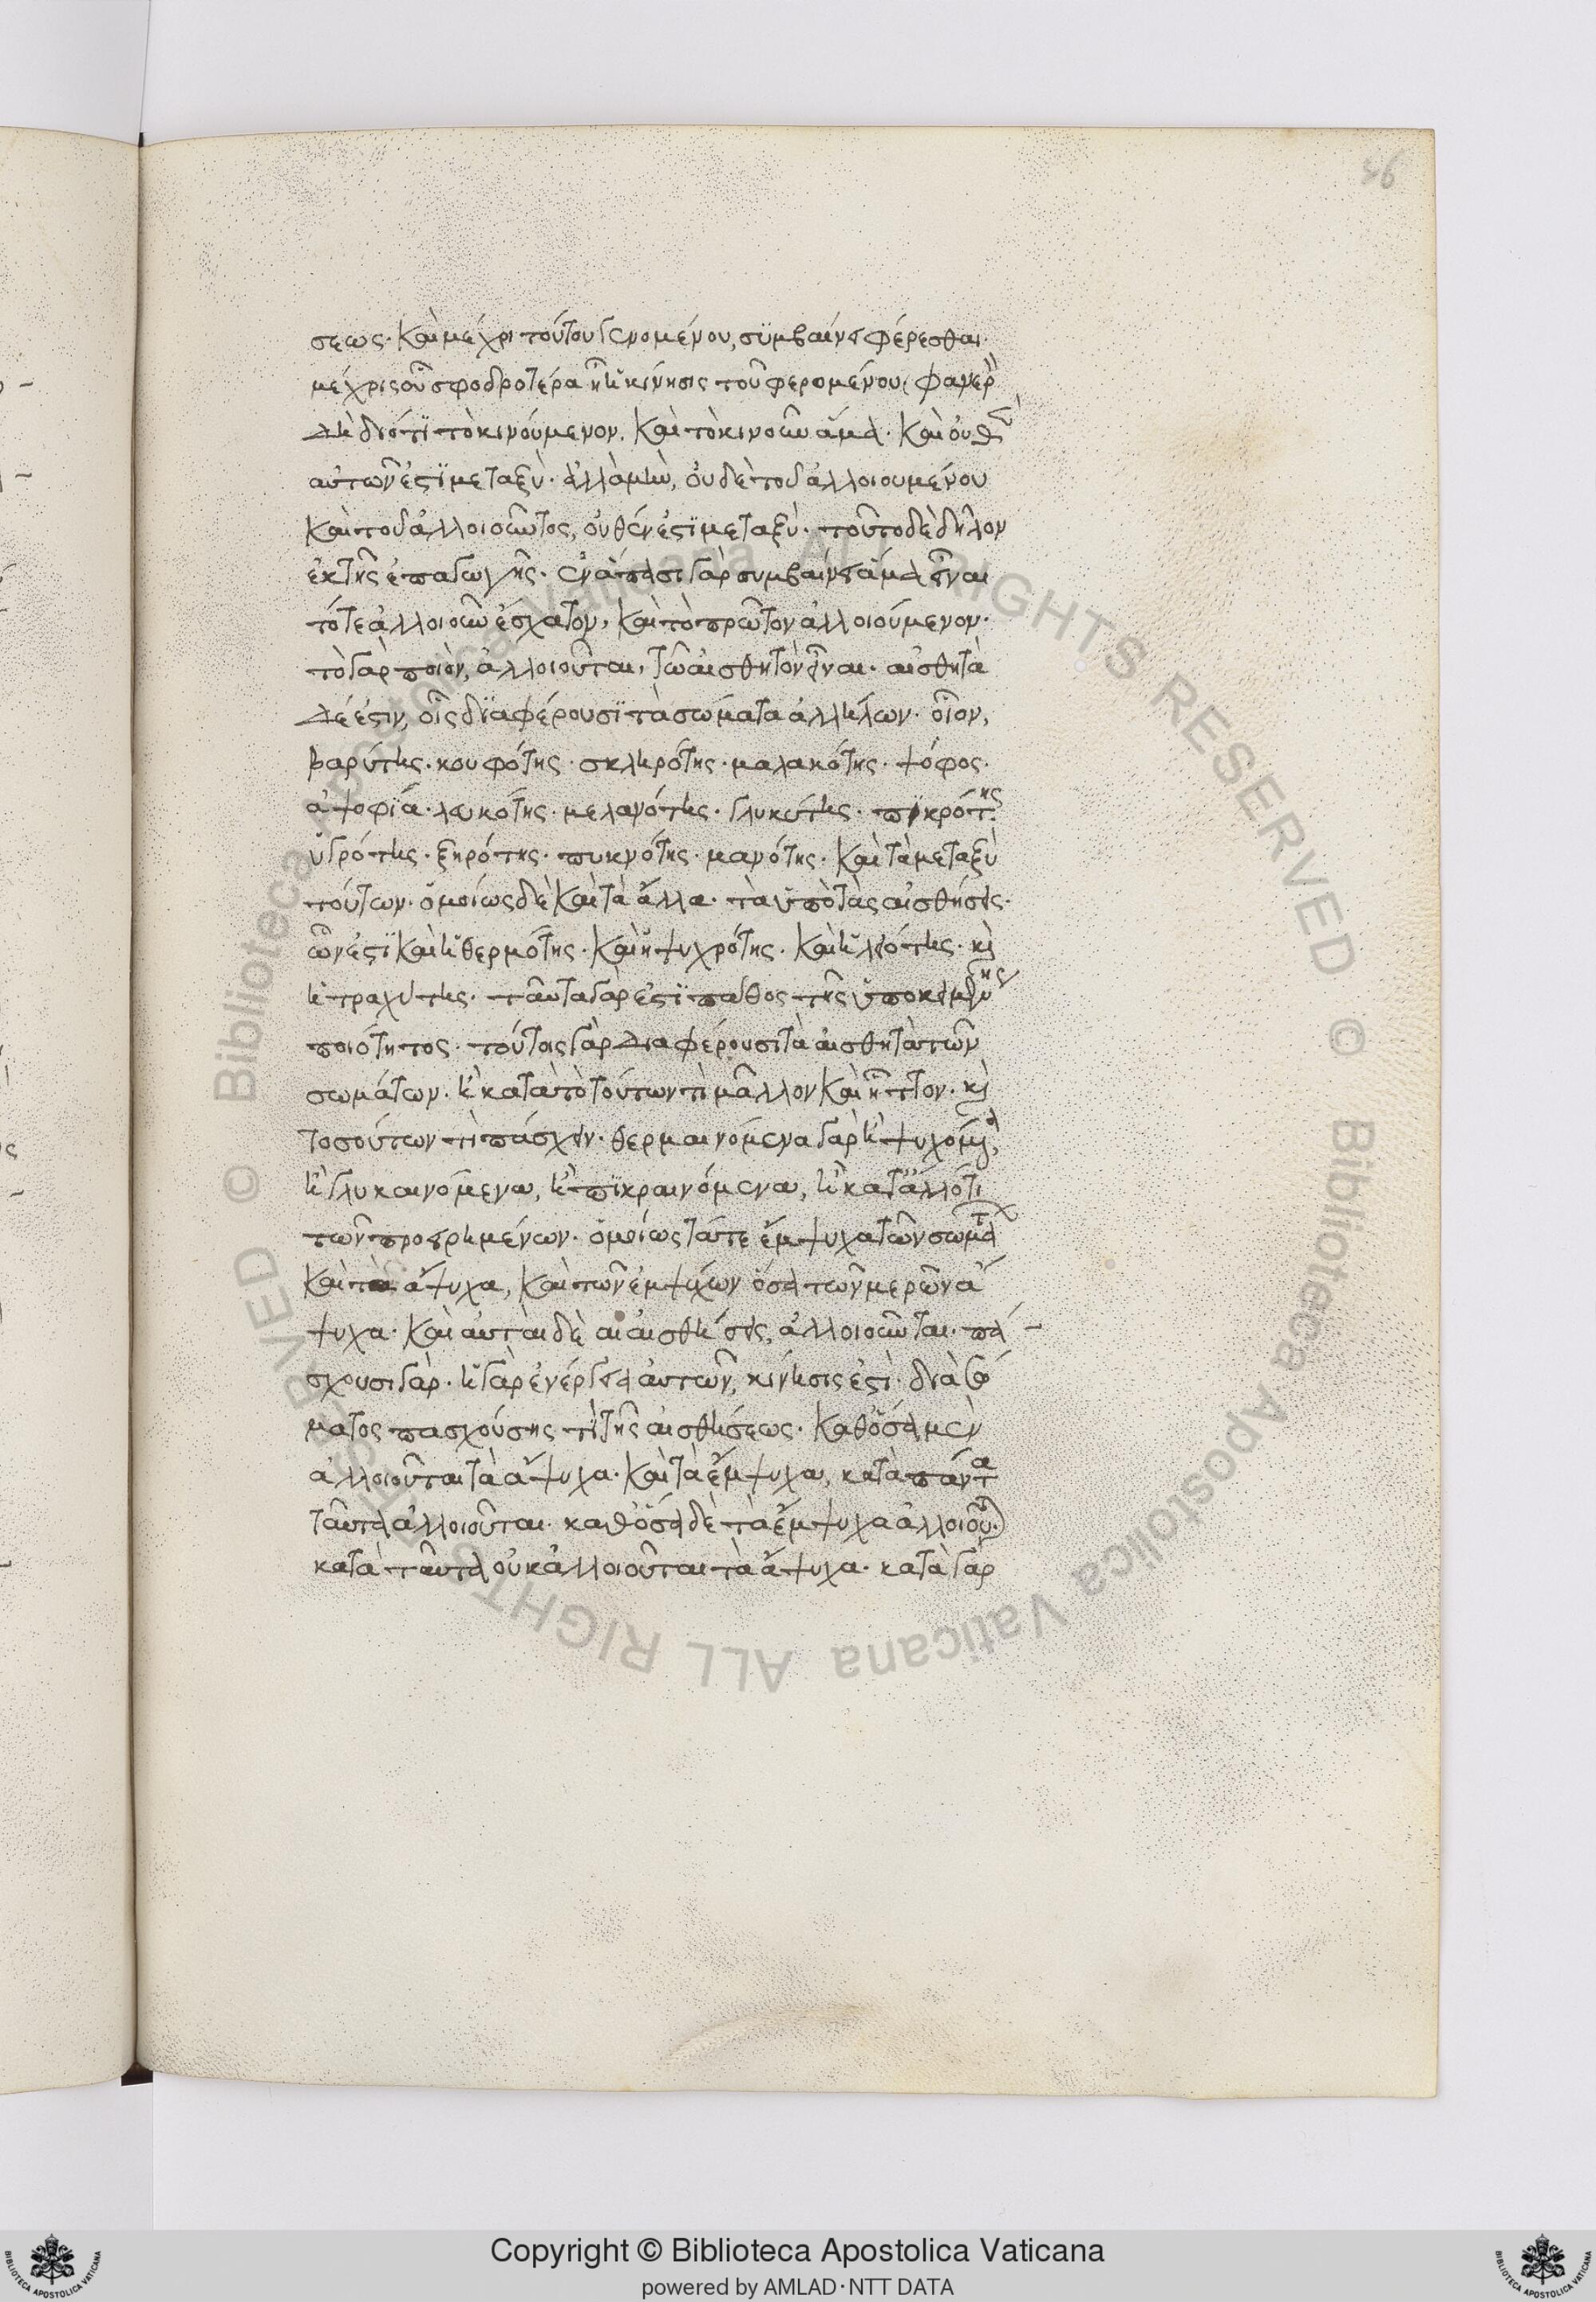 σεως· Καὶ μέχρι τούτου γενομένου, συμβαίνει φέρεσθαι·
μέχρις οὗ σφοδροτέρα ἦ ἡ κίνησις τοῦ φερομένου· φανερὸν
δὴ διότι τὸ κινούμενον. Καὶ τὸ κινοῦν ἅμα· Καὶ οὐθὲν
αὐτῶν ἐστι μεταξύ· ἀλλὰ μὴν, οὐδὲ τοῦ ἀλλοιουμένου
Καὶ τοῦ ἀλλοιοῦντος, οὐθέν ἐστι μεταξύ· τοῦτο δὲ δῆλον
ἐκ τῆς ἐπαγωγῆς· ἐν ἅπασι γὰρ συμβαίνει ἅμα εἶναι
τό τε ἀλλοιοῦν ἔσχατον, Καὶ τὸ πρῶτον ἀλλοιούμενον·
τὸ γὰρ ποιὸν, ἀλλοιοῦται, τῷ αἰσθητὸν εἶναι· αἰσθητὰ
δέ ἐστιν, οἷς διαφέρουσι τὰ σώματα ἀλλήλων· οἷον,
βαρύτης· κουφότης· σκληρότης· μαλακότης· ψόφος·
ἀψοφία· λευκότης· μελανότης· γλυκύτης· πικρότης·
ὑγρότης· ξηρότης· πυκνότης· μανότης· Καὶ τὰ μεταξὺ
τούτων· ὁμοίως δὲ Καὶ τὰ ἄλλα· τὰ ὑπὸ τὰς αἰσθήσεις·
ὧν ἐστι Καὶ ἡ θερμότης· Καὶ ἡ ψυχρότης· Καὶ ἡ λειότης· καὶ
ἡ τραχύτης· ταῦτα γάρ ἐστι πάθος τῆς ὑποκειμένης
ποιότητος· τούτοις γὰρ διαφέρουσι τὰ αἰσθητὰ τῶν
σωμάτων· ἢ κατὰ τὸ τούτων τὶ μᾶλλον Καὶ ἧττον· καὶ
τοσούτων τὶ πάσχειν· θερμαινόμενα γὰρ ἢ ψυχόμενα,
ἢ γλυκαινόμενα, ἢ πικραινόμενα, ἢ κατ' ἄλλό τι
τῶν προειρημένων· ὁμοίως τά τε ἔμψυχα τῶν σωμάτων
Καὶ τὰ ἄψυχα, Καὶ τῶν ἐμψύχων ὅσα τῶν μερῶν ἄ
ψυχα· Καὶ αὐταὶ δὲ αἱ αἰσθήσεις, ἀλλοιοῦνται· πά
σχουσι γάρ· ἡ γὰρ ἐνέργεια αὐτῶν, κίνησίς ἐστι· διὰ σώ
ματος πασχούσης τὶ τῆς αἰσθήσεως· Καθ' ὅσα μὲν
ἀλλοιοῦται τὰ ἄψυχα· Καὶ τὰ ἔμψυχα, κατὰ πάντα
ταῦτα ἀλλοιοῦται· καθ' ὅσα δὲ τὰ ἔμψυχα ἀλλοιοῦται·
κατὰ ταῦτα οὐκ ἀλλοιοῦται τὰ ἄψυχα· κατὰ γὰρ
Copyright © Biblioteca Apostolica Vaticana
powered by AMLAD · NTT DATA